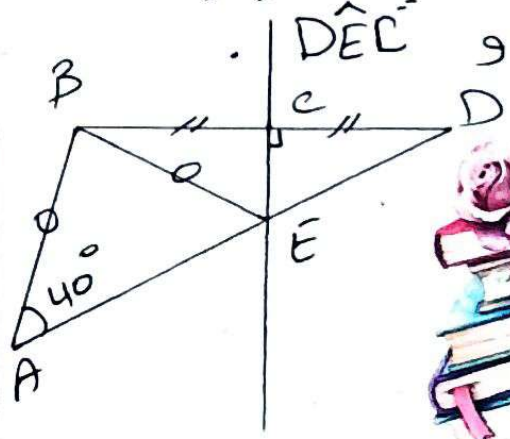 DÊC
B
C
D
E
40°
A